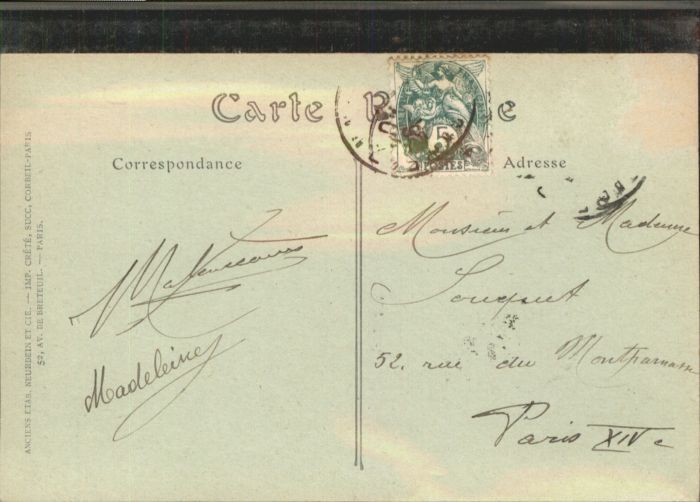 Carte
Correspondance
Adresse
5
POSTES
Monsieur et Madame
52. rue du Montparnasse
Paris XIVe
Madeleine
ANCIENS ETAB. NEURDEIN ET CIE. — IMP. CRÉTÉ, SUCC. CORBEIL-PARIS
52, AV. DE BRETEUIL. — PARIS.